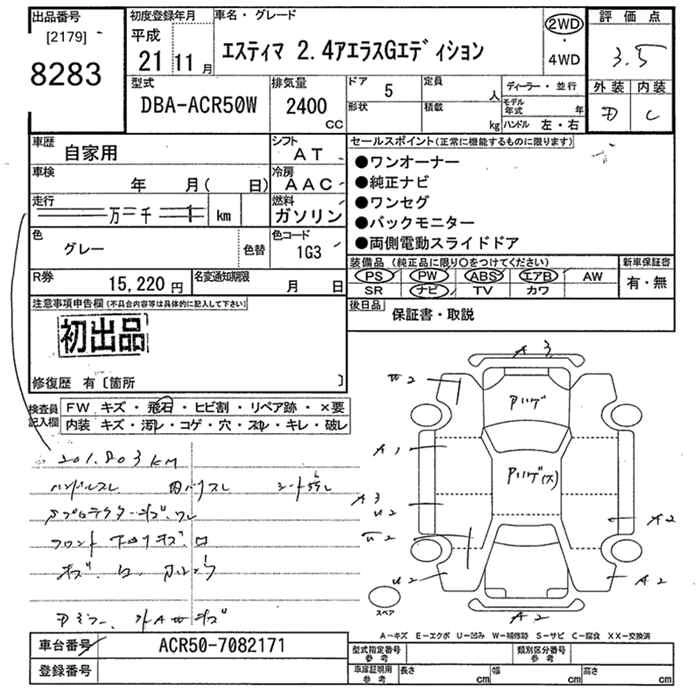 出品番号
[2179]
8283
初度登録年月
平成
21 11月
車名・グレード
エスティマ 2.4アエラスGエディション
2WD
・
4WD
評価点
3.5
外装 内装
D C
型式
DBA-ACR50W
排気量
2400
CC
ドア 5
形状
定員 人
積載 kg
ディーラー・並行
モデル年式 年
ハンドル 左・右
車歴
自家用
シフト
AT
車検
年 月( 日)
冷房
AAC
走行
万 千 km
燃料
ガソリン
色
グレー
色替
色コード
1G3
R券
15,220円
名変通知期限
月 日
セールスポイント(正常に機能するものに限ります)
●ワンオーナー
●純正ナビ
●ワンセグ
●バックモニター
●両側電動スライドドア
装備品(純正品に限り○をつけてください)
PS PW ABS エアB AW
SR ナビ TV カワ
新車保証書
有・無
後日品
保証書・取説
注意事項申告欄(不具合内容等は具体的に記入して下さい)
初出品
修復歴 有〔箇所 〕
検査員記入欄
FW キズ・飛石・ヒビ割・リペア跡・×要
内装 キズ・汚レ・コゲ・穴・スレ・キレ・破レ
201,803KM
ハンドルスレ 内バリスレ
A3
W2
Aハゲ
A1
Aハゲ(大)
A3
U2
A2
W2
U2
A2
A2
スペア
A-キズ E-エクボ U-凹み W-補修跡 S-サビ C-腐食 XX-交換済
車台番号
ACR50-7082171
登録番号
型式指定番号
参考
類別区分番号
参考
車庫証明用
参考
長さ cm
幅 cm
高さ cm